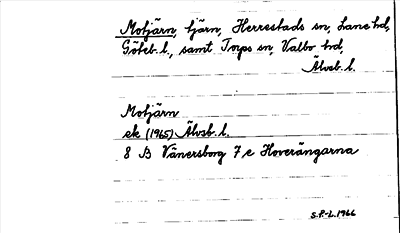 Motjärn, tjärn, Herrestads sn, Lane hd,
Göteb. l., samt Torps sn, Valbo hd,
Älvsb. l.
Motjärn
ek (1965) Älvsb. l.
8 B Vänersborg 7 e Hoverängarna
S.F-L. 1966